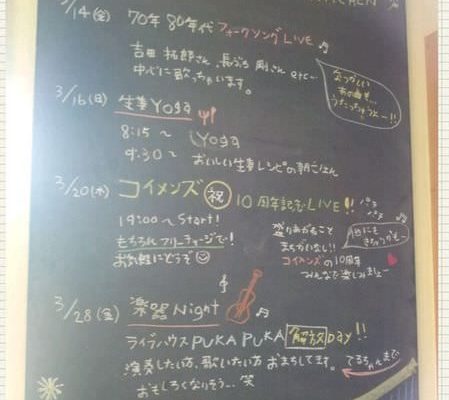 3/14(金) 70年80年代フォークソングLIVE
吉田拓郎さん、長ぶち剛さん etc…
中心に歌っちゃいます。
なつかしい
あの曲も…
うたっちゃうよー!!
3/16(日) 生姜Yoga
8:15〜 Yoga
9:30〜 おいしい生姜レシピの朝ごはん
3/20(木) コイメンズ 祝 10周年記念LIVE!!
19:00〜Start!
もちろんフリーチャージで!
お気軽にどうぞ
盛りあがること
まちがいなし!!
コイメンズの10周年
みんなで楽しみましょー
パチ
パチ
3/28(金) 楽器Night
ライブハウスPUKA PUKA 解放Day!!
演奏したい方、歌いたい方おまちしてます。
おもしろくなりそう…笑
てるちゃんまで